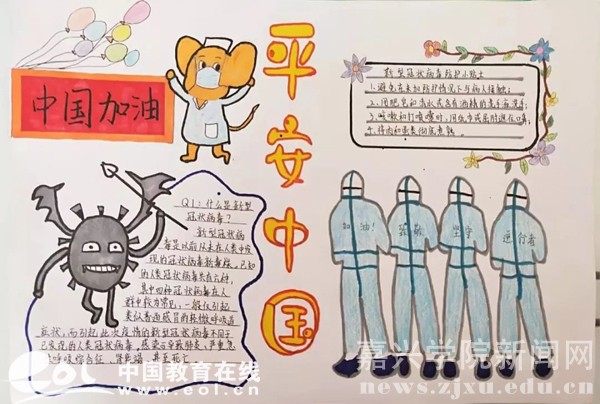 中国加油
平安中国
新型冠状病毒防护小贴士
1.避免在未加防护情况下与病人接触;
2.用肥皂和清水或含有酒精的洗手液洗手;
3.咳嗽和打喷嚏时,用纸巾或屈肘遮住口鼻;
4.将肉和蛋类彻底煮熟。
Q1:什么是新型
冠状病毒?
新型冠状病
毒是以前从未在人类中发
现的冠状病毒新毒株。已知
的人类冠状病毒共有六种,
其中四种冠状病毒在人
群中较为常见,一般仅引起
类似普通感冒的轻微呼吸道
症状,而引起此次疫情的新型冠状病毒不同于
已发现的人类冠状病毒,感染后导致肺炎,严重急
性呼吸综合征、肾衰竭、甚至死亡。
加油!
致敬
坚守
逆行者
中国教育在线
eol www.eol.cn
嘉兴学院新闻网
news.zjxu.edu.cn